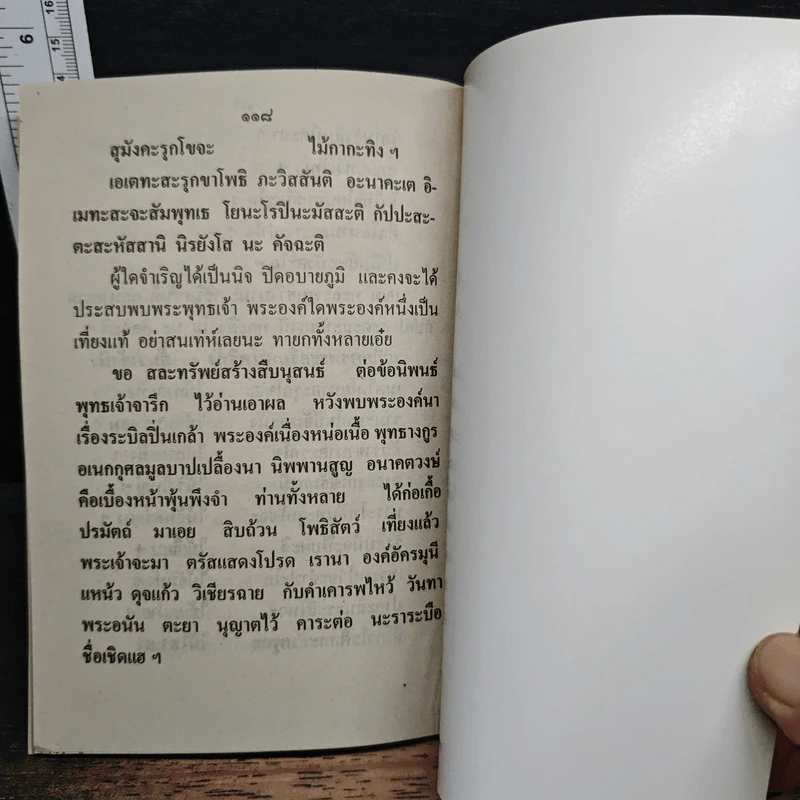 6
16
15
14
๑๑๘
สุมังคะรุกโขจะ ไม้กากะทิง ๆ
เอเตทะสะรุกขาโพธิ ภะวิสสันติ อะนาคะเต อิ-
เมทะสะจะสัมพุทเธ โยนะโรปินะมัสสะติ กัปปะสะ-
ตะสะหัสสานิ นิรยังโส นะ คัจฉะติ
ผู้ใดจำเริญได้เป็นนิจ ปิดอบายภูมิ และคงจะได้
ประสบพบพระพุทธเจ้า พระองค์ใดพระองค์หนึ่งเป็น
เที่ยงแท้ อย่าสนเท่ห์เลยนะ ทายกทั้งหลายเอ๋ย
ขอ สละทรัพย์สร้างสืบนุสนธ์ ต่อข้อนิพนธ์
พุทธเจ้าจารึก ไว้อ่านเอาผล หวังพบพระองค์นา
เรื่องระบิลปิ่นเกล้า พระองค์เนื่องหน่อเนื้อ พุทธางกูร
อเนกกุศลมูลบาปเปลื้องนา นิพพานสูญ อนาคตวงษ์
คือเบื้องหน้าพุ้นพึงจำ ท่านทั้งหลาย ได้ก่อเกื้อ
ปรมัตถ์ มาเอย สิบถ้วน โพธิสัตว์ เที่ยงแล้ว
พระเจ้าจะมา ตรัสแสดงโปรด เรานา องค์อัครมุนี
แหน้ว ดุจแก้ว วิเชียรฉาย กับคำเคารพไหว้ วันทา
พระอนัน ตะยา นุญาตไว้ คาระต่อ นะราระบือ
ชื่อเชิดแฮ ๆ